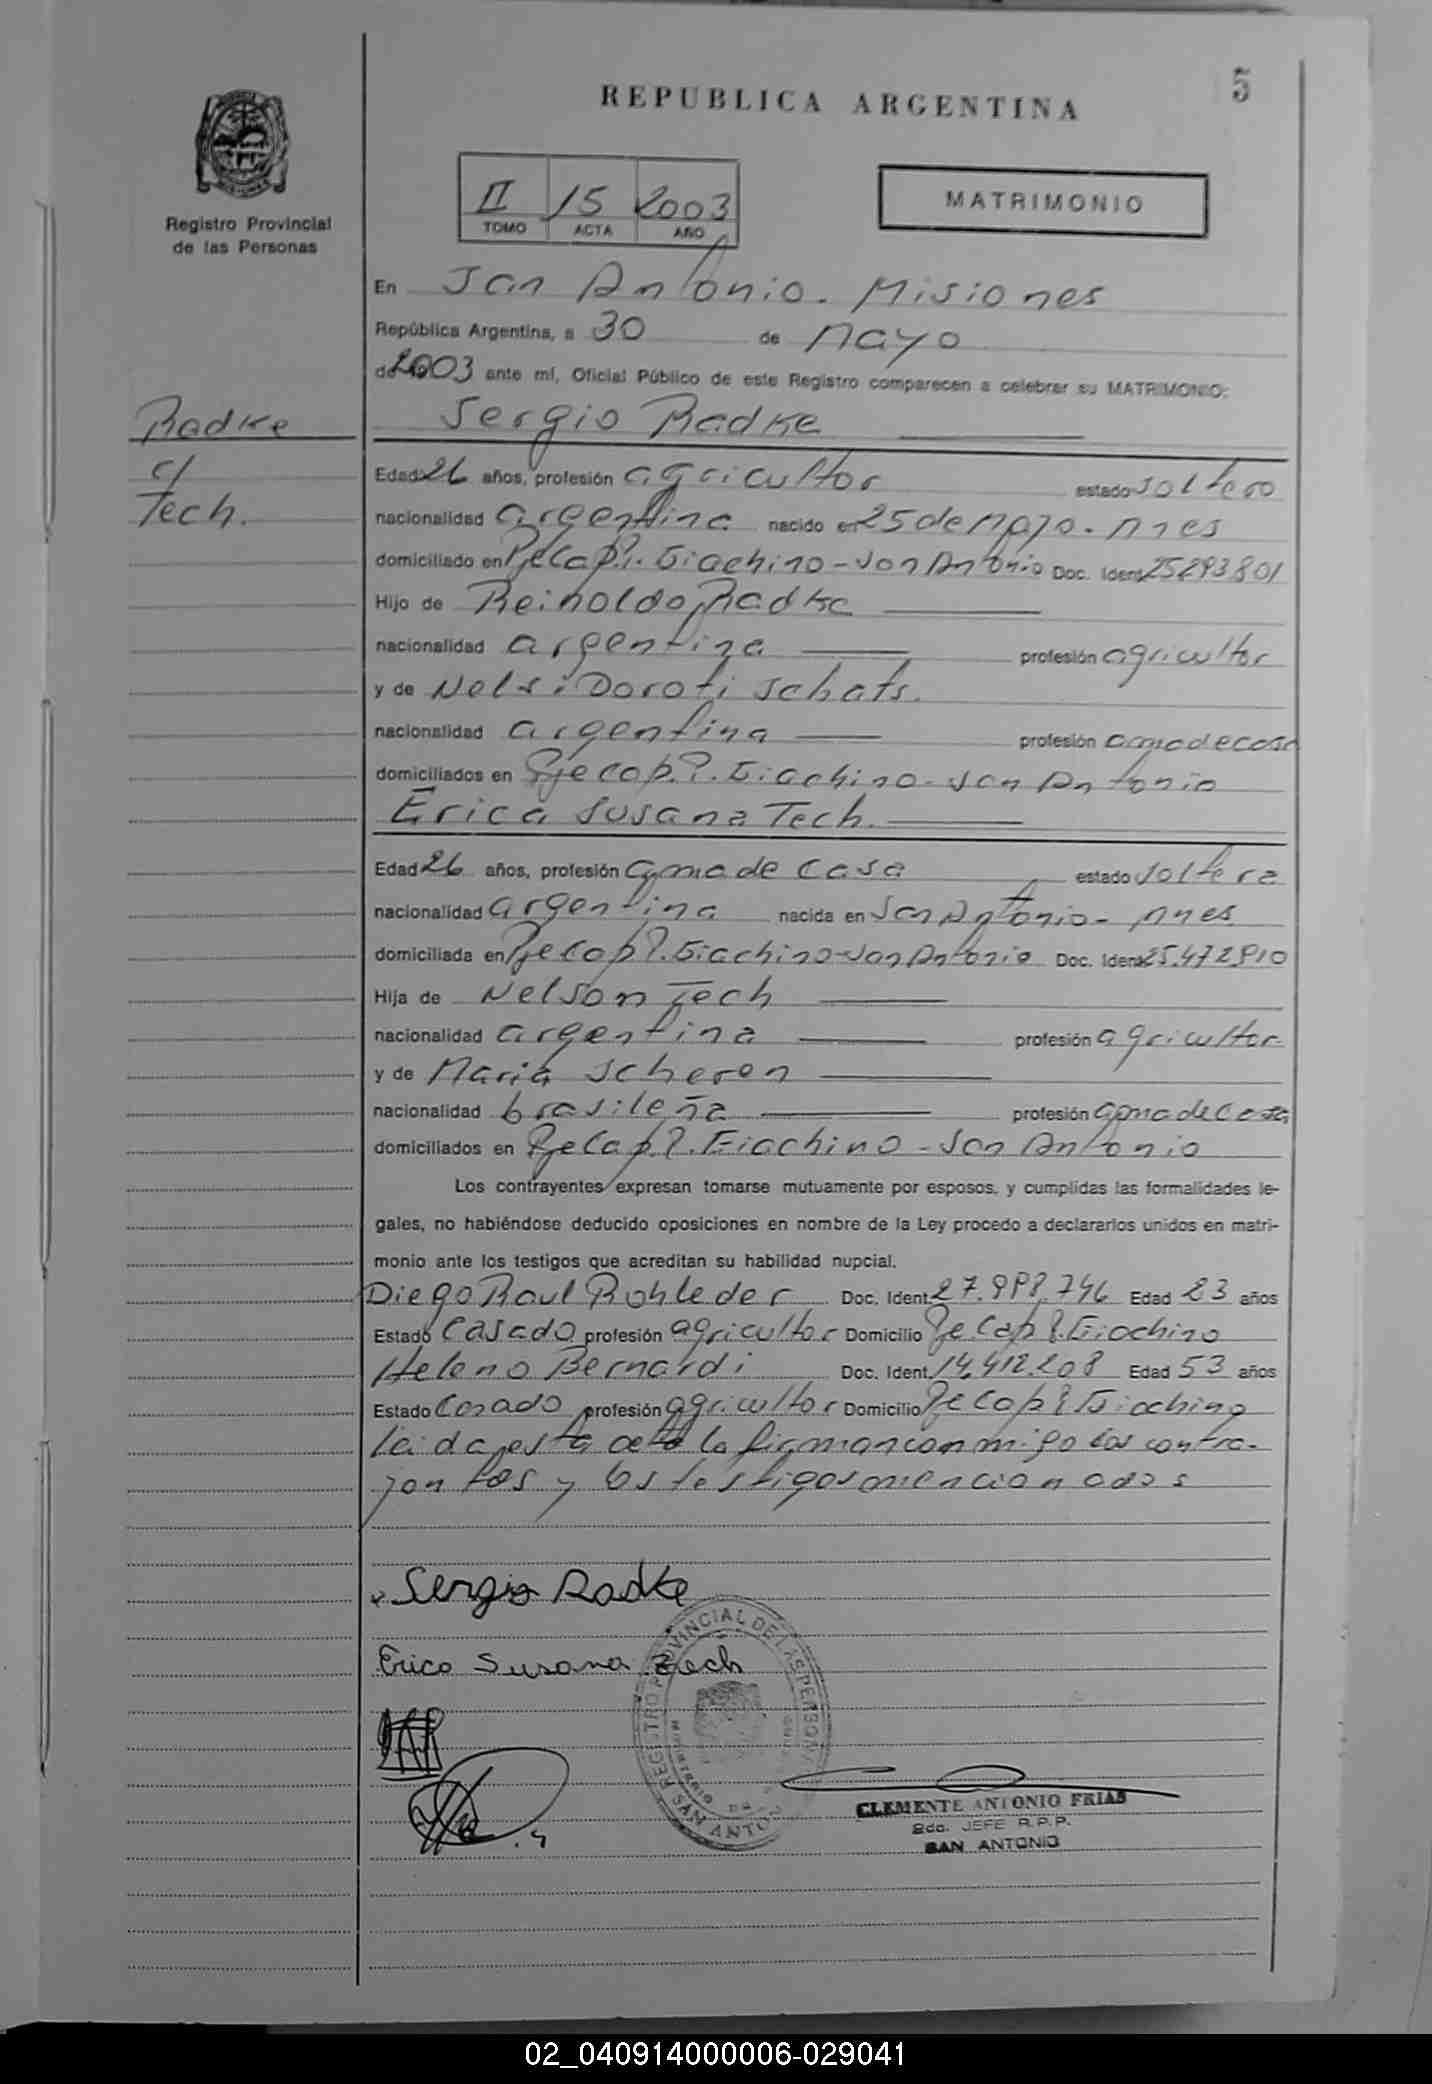 REPUBLICA ARGENTINA
5
Registro Provincial
de las Personas
II 15 2003
TOMO ACTA AÑO
MATRIMONIO
En San Antonio. Misiones
República Argentina, a 30 de Mayo
de 2003 ante mí, Oficial Público de este Registro comparecen a celebrar su MATRIMONIO:
Radke
c/
Tech.
Sergio Radke
Edad 26 años, profesión agricultor estado soltero
nacionalidad argentina nacido en 25 de Mayo. Mnes
domiciliado en Pje Cap. P. Giachino - San Antonio Doc. Ident. 25293801
Hijo de Reinoldo Radke
nacionalidad argentina profesión agricultor
y de Nelsi Doroti Schats.
nacionalidad argentina profesión ama de casa
domiciliados en Pje Cap. P. Giachino - San Antonio
Erica Susana Tech.
Edad 26 años, profesión ama de casa estado soltera
nacionalidad argentina nacida en San Antonio - Mnes
domiciliada en Pje Cap P. Giachino - San Antonio Doc. Ident. 25.472.810
Hija de Nelson Tech
nacionalidad argentina profesión agricultor
y de Maria Scheron
nacionalidad brasileña profesión ama de casa
domiciliados en Pje Cap. P. Giachino - San Antonio
Los contrayentes expresan tomarse mutuamente por esposos, y cumplidas las formalidades le-
gales, no habiéndose deducido oposiciones en nombre de la Ley procedo a declararlos unidos en matri-
monio ante los testigos que acreditan su habilidad nupcial.
Diego Raul Rohleder Doc. Ident. 27.988.746 Edad 23 años
Estado Casado profesión agricultor Domicilio Pje Cap P. Giachino
Heleno Bernardi Doc. Ident. 14.412.208 Edad 53 años
Estado Casado profesión agricultor Domicilio Pje Cap P Giachino
leida esta acta la firman conmigo los contra-
yentes y los testigos mencionados
Sergio Radke
Erica Susana Tech
REGISTRO PROVINCIAL DE LAS PERSONAS
MINISTERIO DE
SAN ANTONIO
CLEMENTE ANTONIO FRIAS
2do. JEFE R.P.P.
SAN ANTONIO
02_040914000006-029041